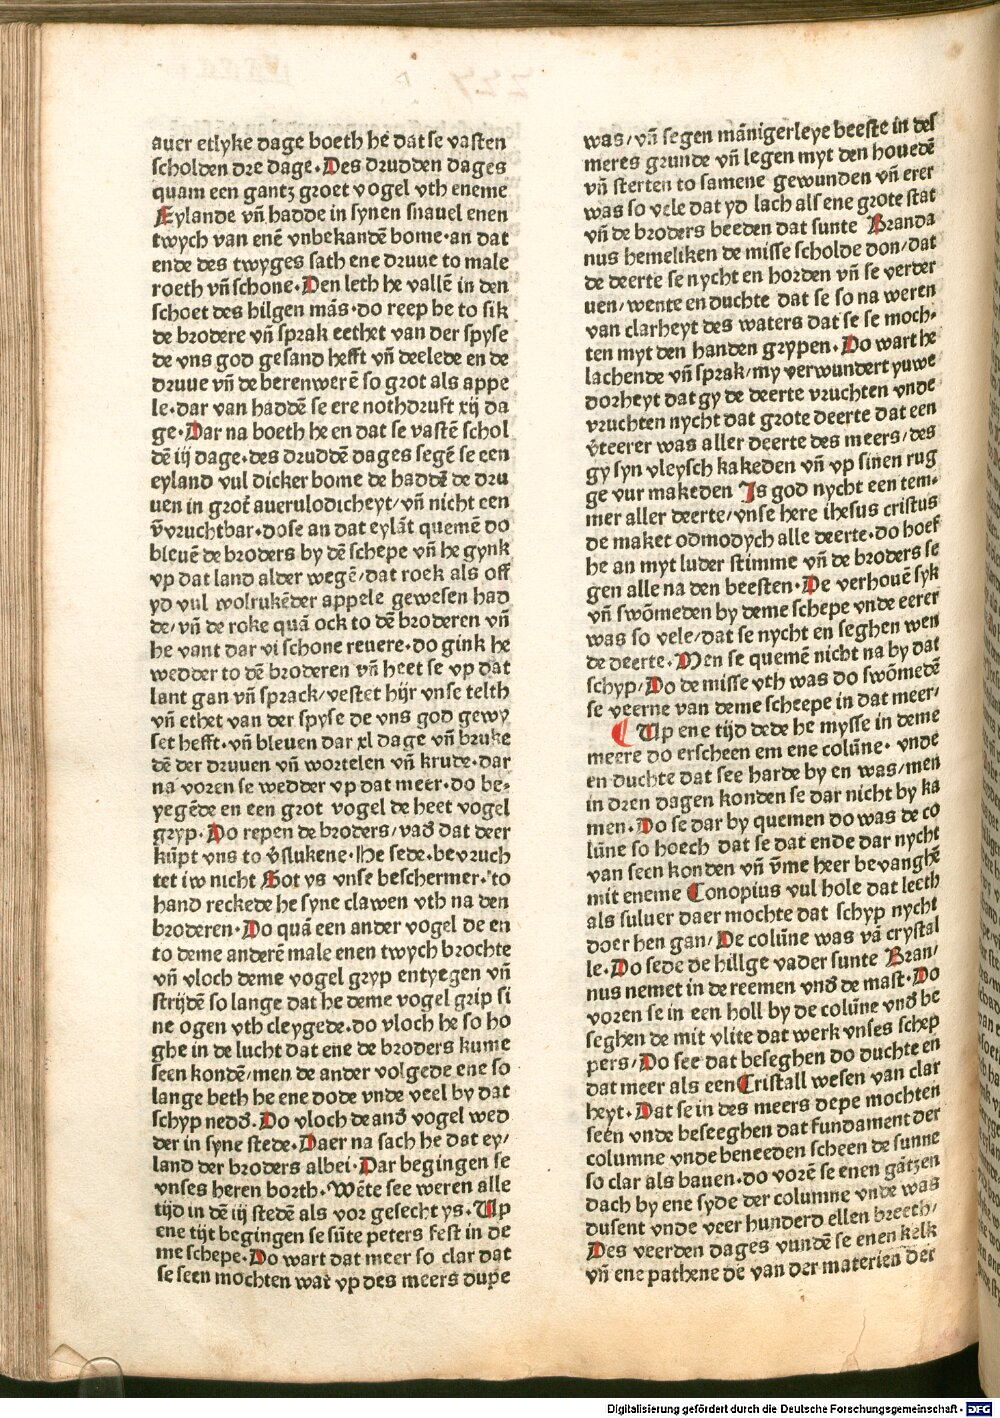 auer etlyke dage boeth he dat se vasten
scholden dre dage. Des drudden dages
quam een gantz groet vogel vth eneme
Eylande vn̄ hadde in synen snauel enen
twych van enē vnbekandē bome. an dat
ende des twyges sath ene druue to male
roeth vn̄ schone. Den leth he vallē in den
schoet des hilgen mās. do reep he to sik
de brodere vn̄ sprak eethet van der spyse
de vns god gesand hefft vn̄ deelede en de
druue vn̄ de beren werē so grot als appe
le. dar van haddē se ere nothdruft xij da
ge. Dar na boeth he en dat se vastē schol
dē iij dage. des druddē dages segē se een
eyland vul dicker bome de haddē de dru
uen in grot̄ auerulodicheyt/ vn̄ nicht een
v̄vruchtbar. dose an dat eylāt quemē do
bleuē de broders by dē schepe vn̄ he gynk
vp dat land alder wegē/ dat roek als off
yd vul wolrukēder appele gewesen had
de/ vn̄ de roke quā ock to dē broderen vn̄
he vant dar vi schone reuere. do gink he
wedder to dē broderen vn̄ heet se vp dat
lant gan vn̄ sprack/ vestet hijr vnse telth
vn̄ ethet van der spyse de vns god gewy
set hefft. vn̄ bleuen dar xl dage vn̄ bruke
dē der druuen vn̄ wortelen vn̄ krude. dar
na voren se wedder vp dat meer. do be-
yegēde en een grot vogel de heet vogel
gryp. Do repen de broders/ vad̄ dat deer
kūpt vns to v̄slukene. He sede. bevruch
tet iw nicht Got ys vnse beschermer. to
hand reckede he syne clawen vth na den
broderen. Do quā een ander vogel de en
to deme anderē male enen twych brochte
vn̄ vloch deme vogel gryp entyegen vn̄
strijdē so lange dat he deme vogel grip si
ne ogen vth cleygede. do vloch he so ho
ghe in de lucht dat ene de broders kume
seen kondē/ men de ander volgede ene so
lange beth he ene dode vnde veel by dat
schyp nedd̄. Do vloch de and̄ vogel wed
der in syne stede. Daer na sach he dat ey/
land der broders albei. Dar begingen se
vnses heren borth. Wēte see weren alle
tijd in dē iij stedē als vor gesecht ys. Up
ene tijt begingen se sūte peters fest in de
me schepe. Do wart dat meer so clar dat
se seen mochten wat vp des meers dupe
was/ vn̄ segen mānigerleye beeste in des
meres grunde vn̄ legen myt den houedē
vn̄ sterten to samene gewunden vn̄ erer
was so vele dat yd lach als ene grote stat
vn̄ de broders beeden dat sunte Branda
nus hemeliken de misse scholde don/ dat
de deerte se nycht en horden vn̄ se verder
uen/ wente en duchte dat se so na weren
van clarheyt des waters dat se se moch-
ten myt den handen grypen. Do wart he
lachende vn̄ sprak/ my verwundert yuwe
dorheyt dat gy de deerte vruchten vnde
vruchten nycht dat grote deerte dat een
v̄teerer was aller deerte des meers/ des
gy syn vleysch kakeden vn̄ vp sinen rug
ge vur makeden Is god nycht een tem-
mer aller deerte/ vnse here ihesus cristus
de maket odmodych alle deerte. do hoef
he an myt luder stimme vn̄ de broders se
gen alle na den beesten. De verhouē syk
vn̄ swōmeden by deme schepe vnde eerer
was so vele/ dat se nycht en seghen wen
de deerte. Men se quemē nicht na by dat
schyp/ Do de misse vth was do swōmedē
se veerne van deme scheepe in dat meer/
Up ene tijd dede he mysse in deme
meere do erscheen em ene colūne. vnde
en duchte dat see harde by en was/ men
in dren dagen konden se dar nicht by ka
men. Do se dar by quemen do was de co
lūne so hoech dat se dat ende dar nycht
van seen konden vn̄ v̄me heer bevanghē
mit eneme Conopius vul hole dat leeth
als suluer daer mochte dat schyp nycht
doer hen gan/ De colūne was vā crystal
le. Do sede de hillge vader sunte Bran/
nus nemet in de reemen vnd̄ de mast. Do
voren se in een holl by de colūne vnd̄ be
seghen de mit vlite dat werk vnses schep
pers/ Do see dat beseghen do duchte en
dat meer als een Cristall wesen van clar
heyt. Dat se in des meers depe mochten
seen vnde beseeghen dat fundament der
columne vnde beneeden scheen de sunne
so clar als bauen. do vorē se enen gātzen
dach by ene syde der columne vnde was
dusent vnde veer hunderd ellen breeth/
Des veerden dages vundē se enen kelk
vn̄ ene pathene de van der materien der
Digitalisierung gefördert durch die Deutsche Forschungsgemeinschaft - DFG